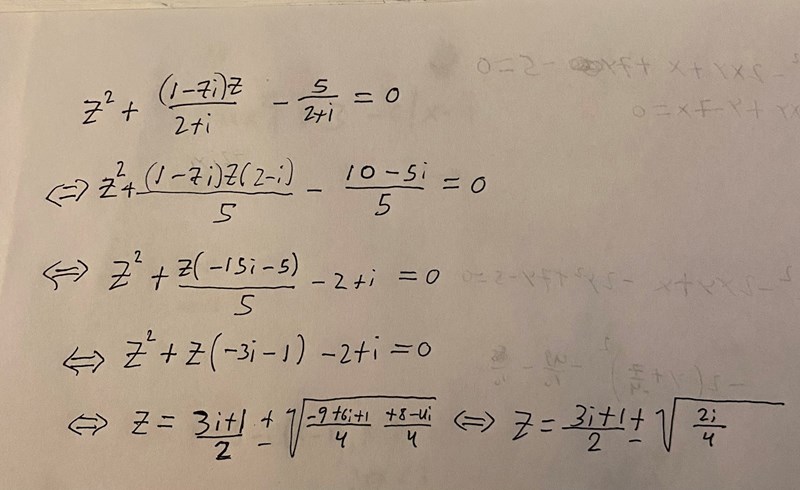 z² + (1-7i)z/(2+i) - 5/(2+i) = 0
⇔ z² + (1-7i)z(2-i)/5 - (10-5i)/5 = 0
⇔ z² + z(-15i-5)/5 - 2+i = 0
⇔ z² + z(-3i-1) -2+i = 0
⇔ z = (3i+1)/2 ± √((-9+6i+1)/4 (+8-4i)/4) ⇔ z = (3i+1)/2 ± √(2i/4)